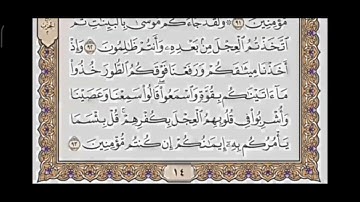 مُؤْمِنِينَ ٩١ ۞ وَلَقَدْ جَآءَكُم مُّوسَىٰ بِٱلْبَيِّنَٰتِ ثُمَّ
ٱتَّخَذْتُمُ ٱلْعِجْلَ مِنۢ بَعْدِهِۦ وَأَنتُمْ ظَٰلِمُونَ ٩٢ وَإِذْ
أَخَذْنَا مِيثَٰقَكُمْ وَرَفَعْنَا فَوْقَكُمُ ٱلطُّورَ خُذُوا۟
مَآ ءَاتَيْنَٰكُم بِقُوَّةٍ وَٱسْمَعُوا۟ ۖ قَالُوا۟ سَمِعْنَا وَعَصَيْنَا
وَأُشْرِبُوا۟ فِى قُلُوبِهِمُ ٱلْعِجْلَ بِكُفْرِهِمْ ۚ قُلْ بِئْسَمَا
يَأْمُرُكُم بِهِۦٓ إِيمَٰنُكُمْ إِن كُنتُم مُّؤْمِنِينَ ٩٣
١٤